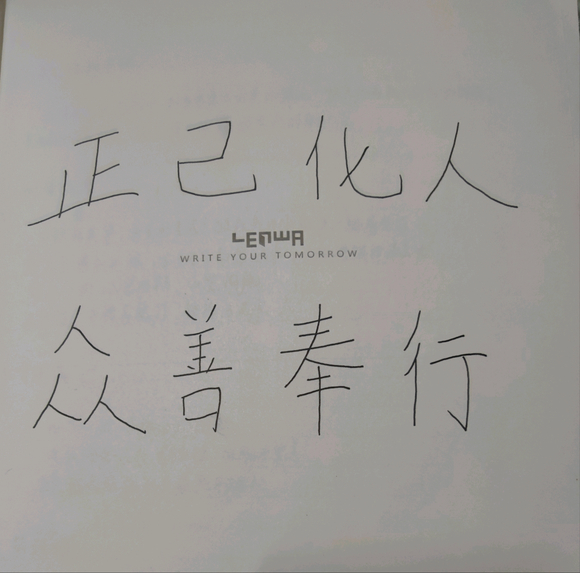 正己化人
LENWA
WRITE YOUR TOMORROW
众善奉行